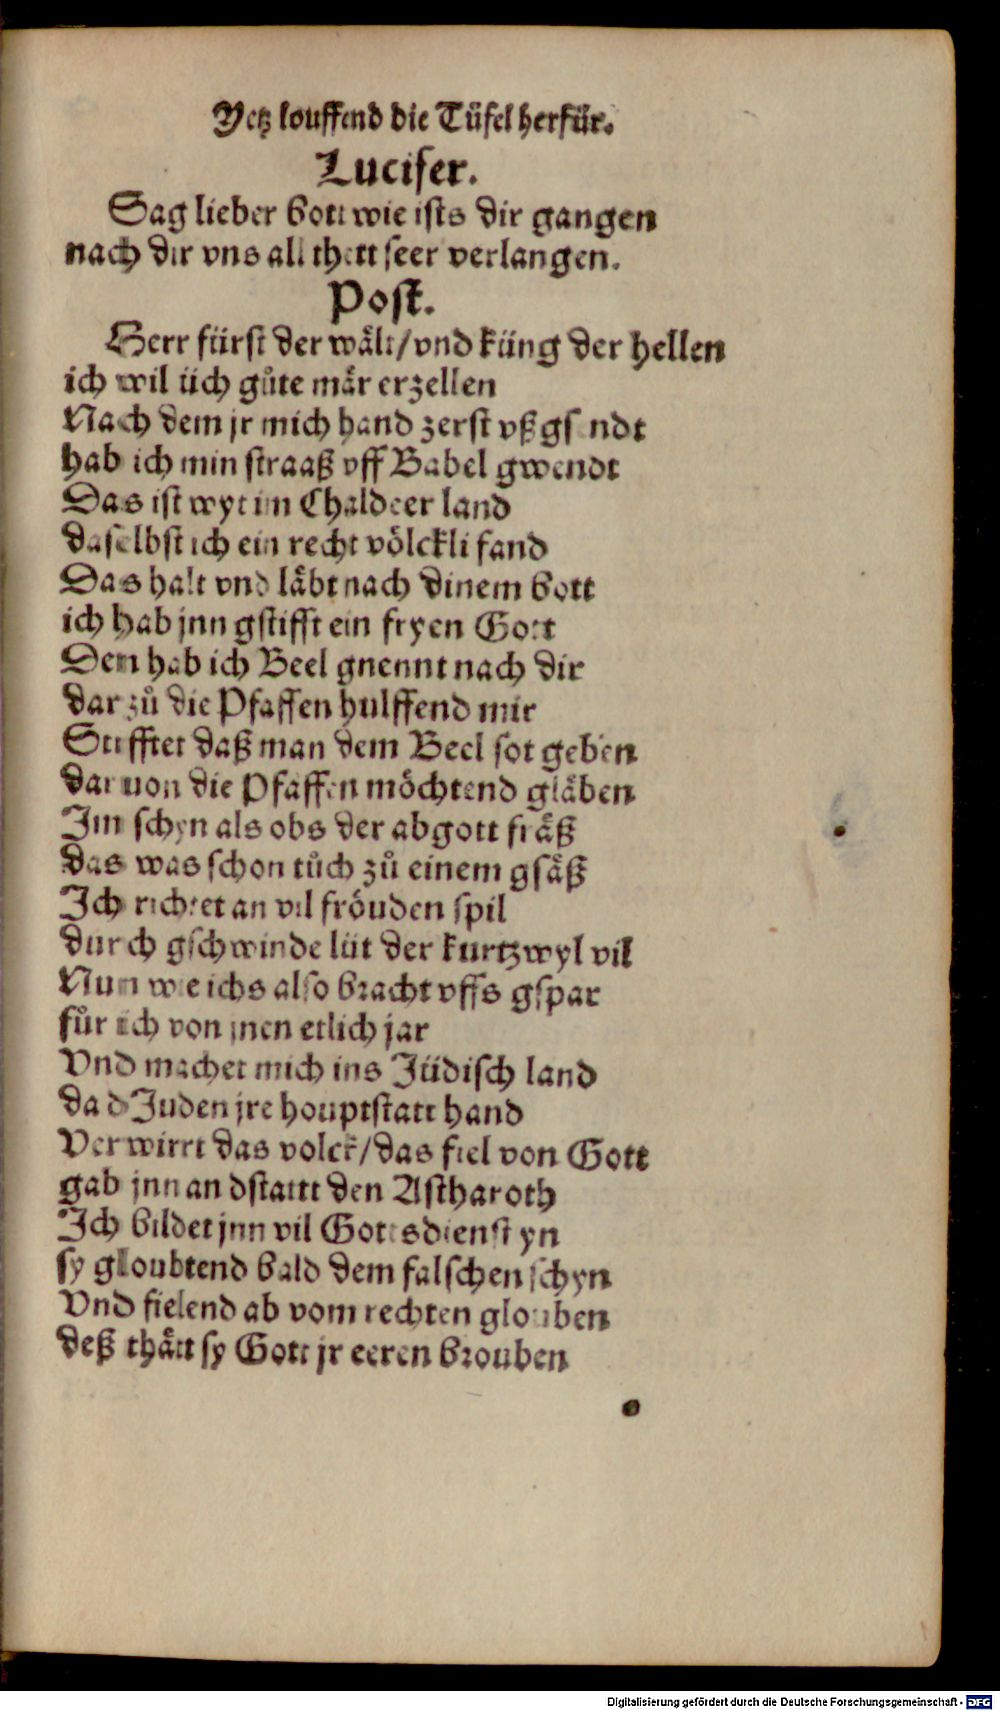 Yetz louffend die Tüfel herfür.
Lucifer.
Sag lieber bott wie ists dir gangen
nach dir vns all thett seer verlangen.
Post.
Herr fürst der wält/vnd küng der hellen
ich wil üch gůte mär erzellen
Nach dem jr mich hand zerst vßgsendt
hab ich min straaß vff Babel gwendt
Das ist wyt im Chaldeer land
daselbst ich ein recht völckli fand
Das halt vnd läbt nach dinem bott
ich hab jnn gstifft ein fryen Gott
Den hab ich Beel gnennt nach dir
dar zů die Pfaffen hulffend mir
Stifftet daß man dem Beel sot geben
daruon die Pfaffen möchtend gläben
Im schyn als obs der abgott fräß
das was schon tůch zů einem gsäß
Ich richtet an vil fröuden spil
durch gschwinde lüt der kurtzwyl vil
Nun wie ichs also bracht vffs gspar
fůr ich von jnen etlich jar
Vnd machet mich ins Jüdisch land
da d Juden jre houptstatt hand
Verwirrt das volck/das fiel von Gott
gab jnn an dstattt den Astharoth
Ich bildet jnn vil Gottsdienst yn
sy gloubtend bald dem falschen schyn
Vnd fielend ab vom rechten glouben
deß thätt sy Gott jr eeren brouben
Digitalisierung gefördert durch die Deutsche Forschungsgemeinschaft - DFG